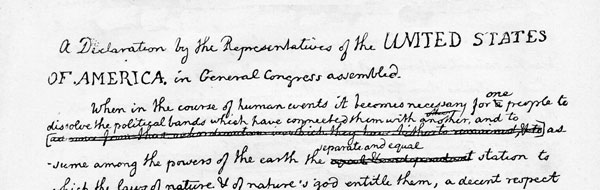 A Declaration by the Representatives of the UNITED STATES
OF AMERICA, in General Congress assembled.
When in the course of human events it becomes necessary for one people to
dissolve the political bands which have connected them with another, and to
as
-sume among the powers of the earth the separate and equal station to
which the laws of nature & of nature's god entitle them, a decent respect